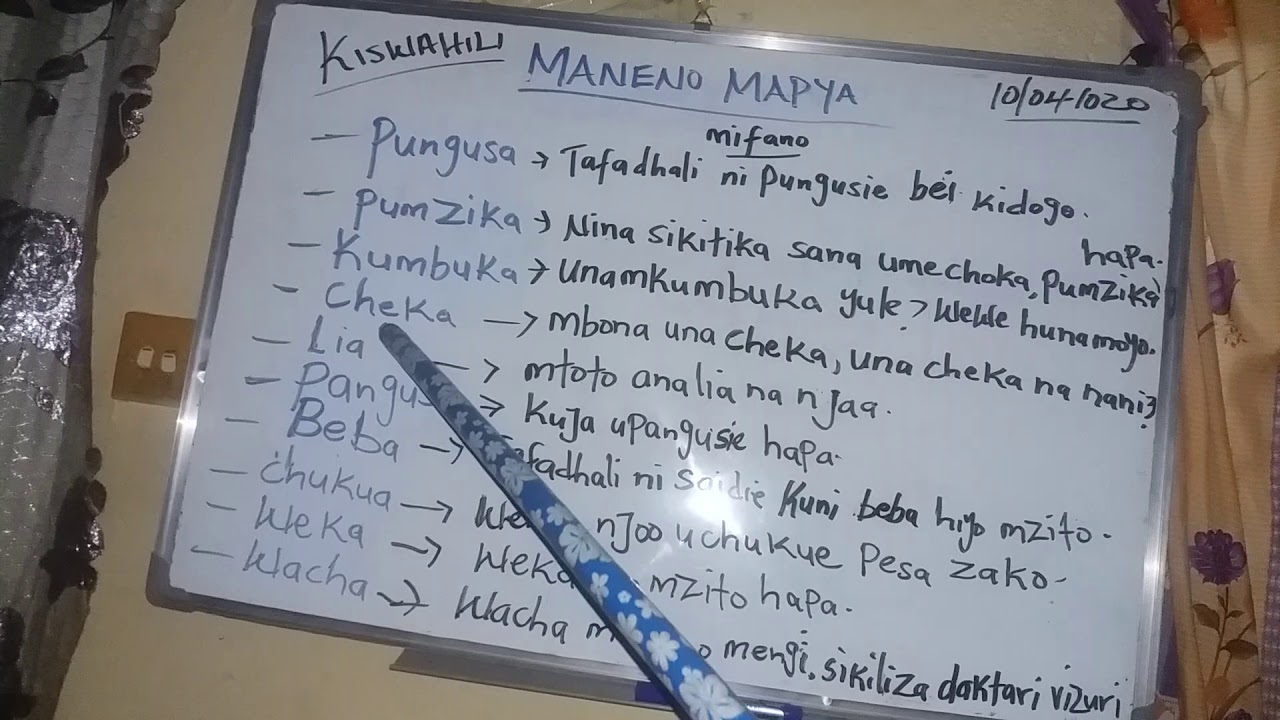 KISWAHILI MANENO MAPYA 10/04/1020
mifano
- Pungusa → Tafadhali ni pungusie bei kidogo.
- Pumzika → Nina sikitika sana umechoka, pumzika hapa.
- Kumbuka → Unamkumbuka yule? Wewe hunamoyo.
- Cheka → mbona una cheka, una cheka na nani?
- Lia → mtoto analia na njaa.
- → Kuja upangusie hapa.
- Beba → ni saidie Kuni beba hiyo mzito.
- Chukua → njoo uchukue Pesa zako.
- Weka → Weka mzito hapa.
- Wacha → Wacha mengi, sikiliza daktari vizuri